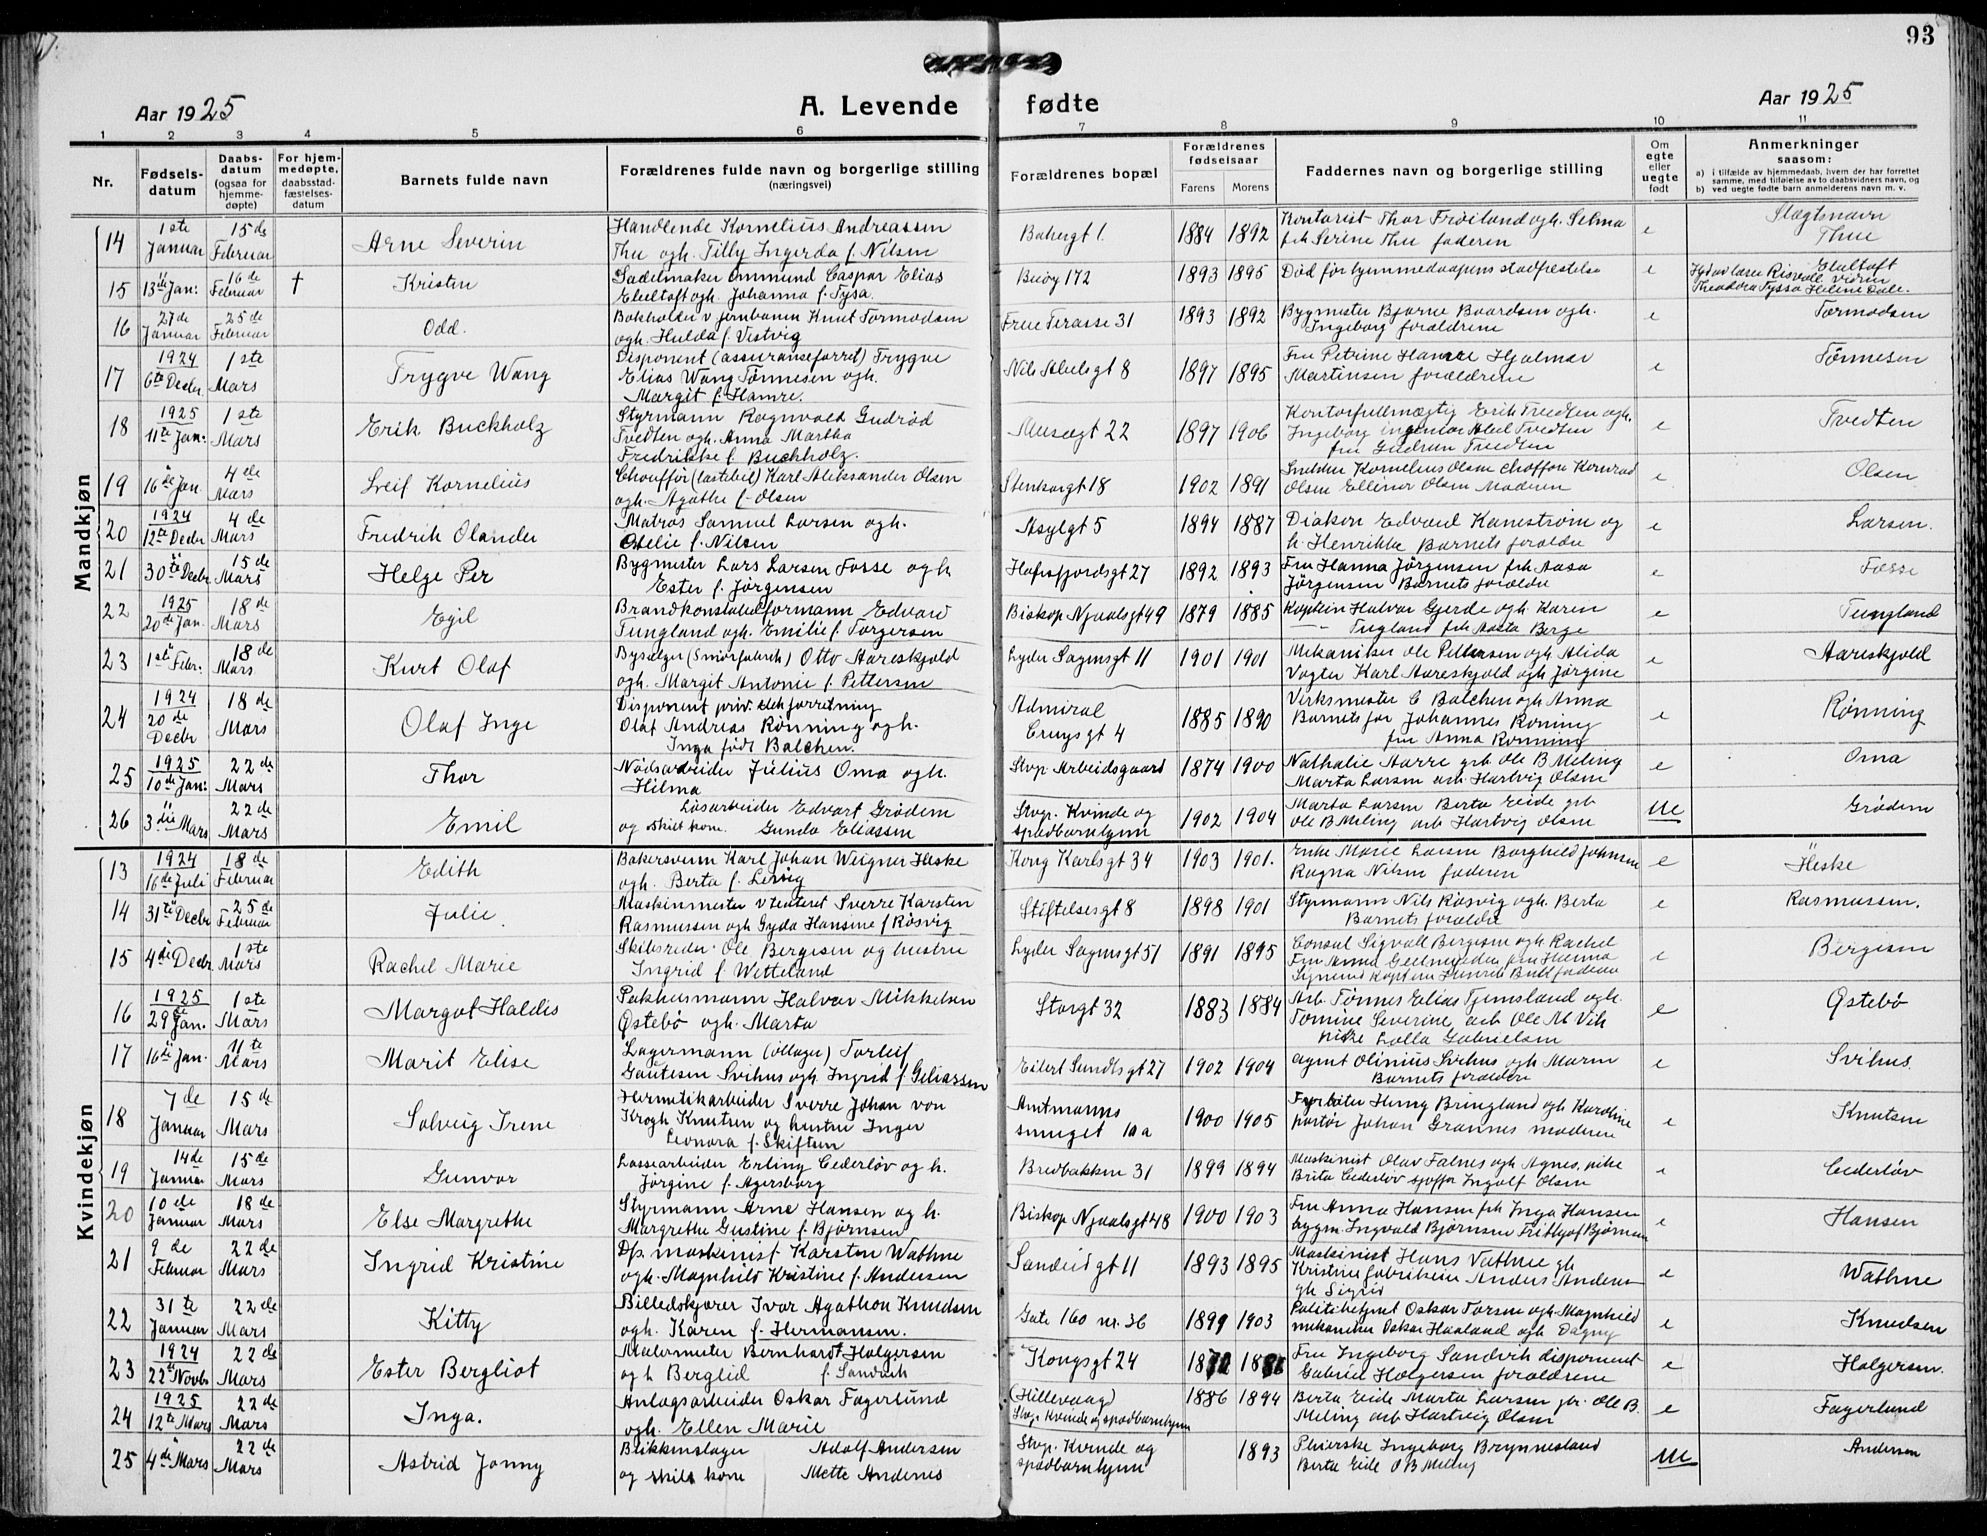 93
Aar 1925
A. Levende fødte
Aar 1925
1 2 3 4 5 6 7 8 9 10 11
Nr.
Fødsels-datum
Daabs-datum (ogsaa for hjemme-døpte)
For hjem-medøpte, daabsstad-fæstelses-datum
Barnets fulde navn
Forældrenes fulde navn og borgerlige stilling (næringsvei)
Forældrenes bopæl
Forældrenes fødselsaar
Farens Morens
Faddernes navn og borgerlige stilling
Om egte eller uegte født
Anmerkninger saasom:
a) i tilfælde av hjemmedaab, hvem der har forrettet samme, med tilføielse av to daabsvidners navn, og
b) ved uegte fødte barn anmelderens navn m. v.
Mandkjøn
14 1ste Januar 15de Februar Arne Severin Handlende Kornelius Andreassen
Thu ogh. Tilly Ingerda f. Nilsen Bakergt 1. 1884 1892 Kontorist Thor Frøiland ogh. Selma
frk Serine Thu faderen e Slægtsnavn Thue
15 13de Jan: 16de Februar † Kristen Sadelmaker Ommund Caspar Elias
Eteltoft ogh. Johanna f. Tysa. Buøy 172 1893 1895 Død før hjemmedaapens stadfestelse e
16 27de Januar 25de Februar Odd. Bokholder v jernbanen Knut Tormodsen
ogh. Hulda f. Vestvig Frue Terasse 31 1893 1892 Bygmester Bjarne Baardsen ogh.
Ingeborg forældrene e Tormodsen
17 1924 6te Decbr 1ste Mars Trygve Wang Disponent (assuranseforret) Trygve
Elias Wang Tønnesen ogh.
Margit f. Hamre. Nils Abelsgt 8 1897 1895 Fru Petrine Hamre Hjalmar
Martinsen forældrene e Tønnesen
18 1925 11te Jan: 1ste Mars Erik Buckholz Styrmann Ragnvald Gudrød
Tvedten ogh. Anna Martha
Fredrikke f. Buckholz. Musægt 22 1897 1906 Kontorfullmægtig Erik Tvedten ogh.
Ingeborg ingeniør Abel Tvedten
frk Gudrun Tvedten e Tvedten
19 16de Jan 4de Mars Leif Kornelius Chauffør (lastebil) Karl Aleksander Olsen
ogh. Agathe f. Olsen Stenkargt 18 1902 1891 Snekker Kornelius Olsen choffør Konrad
Olsen Ellinor Olsen Moderen e Olsen
20 1924 12te Decbr 4de Mars Fredrik Olander Matros Samuel Larsen ogh.
Otelie f. Nilsen Asylgt 5 1894 1887 Diakon Edvard Kanestrøm og
h. Henrikke Barnets forældre e Larsen.
21 30te Decbr 15de Mars Helge Per Bygmester Lars Larsen Fosse ogh
Ester f. Jørgensen Hafrsfjordsgt 27 1892 1893 Fru Hanna Jörgensen frk Aasa
Jörgensen Barnets forældre e Fosse
22 1925 20de Jan. 18de Mars Egil Brandkonstabelformann Edvard
Tungland ogh. Emilie f. Torgersen Biskop Njaalsgt 49 1879 1885 Kaptein Halvar Gjerde ogh. Karen
Tugland frk Aasta Berge e Tungland
23 1ste Febr. 18de Mars Kurt Olaf Bysælger (Smørfabrik) Otto Aareskjold
ogh. Margit Antonie f. Pettersen Lyder Sagensgt 11 1901 1901 Mekaniker Ole Pettersen ogh Alida
Vogter Karl Aareskjold ogh Jørgine e Aareskjold
24 1924 20de Decbr 18de Mars Olaf Inge Disponent priv. elek forretning
Olaf Andreas Rönning ogh.
Inga født Balchen. Admiral Cruysgt 4 1885 1890 Virksmester C Balchen ogh Anna
Barnets far Johannes Rönning
fru Anna Rönning e Rønning
25 1925 10de Jan: 22de Mars Thor Nødsarbeider Julius Oma ogh.
Hilma Stvgr Arbeidsgaard 1874 1900 Nathalie Aarre grb. Ole B Meling
Marta Larsen arb. Hartvig Olsen e Oma
26 3die Mars 22de Mars Emil Løsarbeider Edvart Grødem
og skilt kone. Gunda Eliassen Stvgr. Kvinde og
spædbarnhjem 1902 1904 Marta Larsen Berta Eide grb
Ole B Meling arb Hartvig Olsen ue Grødem
Kvindekjøn
13 1924 16de Juli 18de Februar Edith Bakersvenn Karl Johan Weigner Heske
ogh. Berta f. Lervig Kong Karlsgt 34 1903 1901. Enke Marie Larsen Borghild Johnsen
Ragna Nilsen faderen e Heske
14 31te Decbr 25de Februar Julie Maskinmester v teateret Sverre Karsten
Rasmussen ogh Gyda Hansine f Røsvig Stiftelsesgt 8 1898 1901 Styrmann Nils Røsvig ogh. Berta
Barnets forældre e Rasmussen.
15 4de Decbr 1ste Mars Rachel Marie Skibsreder Ole Bergesen og hustru
Ingrid f. Wetteland Lyder Sagensgt 51 1891 1895 Consul Sigvall Bergesen ogh Rachel
e Bergesen
16 1925 29de Jan. 1ste Mars Margot Haldis Pakhusmann Halvar Mikkelsen
Østebö ogh. Marta Storgt 32 1883 1884 Arb. Tønnes Elias Tjemsland ogh.
Tomine Severine arb Ole M Vik
pike Lalla Gabrielsen e Østebö
17 16de Jan. 11te Mars Marit Elise Lagermann (ollager) Torleif
Gautesen Svihus ogh. Ingrid f Geliassen Eilert Sundtsgt 27 1902 1904 Agent Olinius Svihus ogh Maren
Barnets forældre e Svihus
18 7de Januar 15de Mars Solveig Irene Hermetikarbeider Sverre Johan von
Krogh Knutsen og hustru Inger
Leonora f. Skiftsen Amtmanns smuget 10a 1900 1905 Fyrbøter Henry Bringland ogh Karoline
portør Johan Grannes moderen e Knutsen
19 14de Januar 15de Mars Gunvor Lossearbeider Erling Cederløv og h.
Jörgine f. Agersborg Bredbakken 31 1899 1894 Maskinist Olav Falnes ogh Agnes, pike
Brita Cederløv sjoffør Ingolf Olsen e Cederløv
20 10de Januar 18de Mars Else Margrethe Styrmann Arne Hansen og h.
Margrethe Gustine f. Bjørnsen Biskop Njaalsgt 48 1900 1903 Fru Anna Hansen frk Inga Hansen
bygm. Ingvald Bjørnsen Fritthjof Bjørnsen e Hansen
21 9de Februar 22de Mars Ingrid Kristine Dp. maskinist Karsten Wathne
ogh. Magnhild Kristine f. Andersen Sandeidgt 11 1893 1895 Maskinist Hans Vathne gh
Kristine fabrikeier Anders Andersen
gh Sigrid e Wathne
22 31te Januar 22de Mars Kitty Billedskjærer Ivar Agathon Knudsen
ogh. Karen f. Hermansen. Gate 160 nr. 36 1899 1903 Politibetjent Oskar Torsen ogh. Magnhild
mekaniker Oskar Haaland ogh Dagny e Knudsen
23 1924 22de Novbr 22de Mars Ester Bergliot Malermester Bernhardt Holgersen
og h Berglid f. Sandvik Kongsgt 24 Fru Ingeborg Sandvik disponent
Gabriel Holgersen forældrene e Holgersen.
24 1925 12te Mars 22de Mars Inga. Anlægsarbeider Oskar Fagerlund
ogh. Ellen Marie (Hillevaag)
Stvgr Kvinde og spædbarnhjem 1886 1894 Berta Eide Marta Larsen gr. Ole B.
Meling arb Hartvig Olsen e Fagerlund
25 4de Mars 22de Mars Astrid Jonny Blikkenslager Adolf Andersen
og skilt kone Mette Andenes Stvgr. Kvinde og
spædbarnhjem 1893 Pleierske Ingeborg Brynnesland
Berta Eide O B Meling ue Andersen